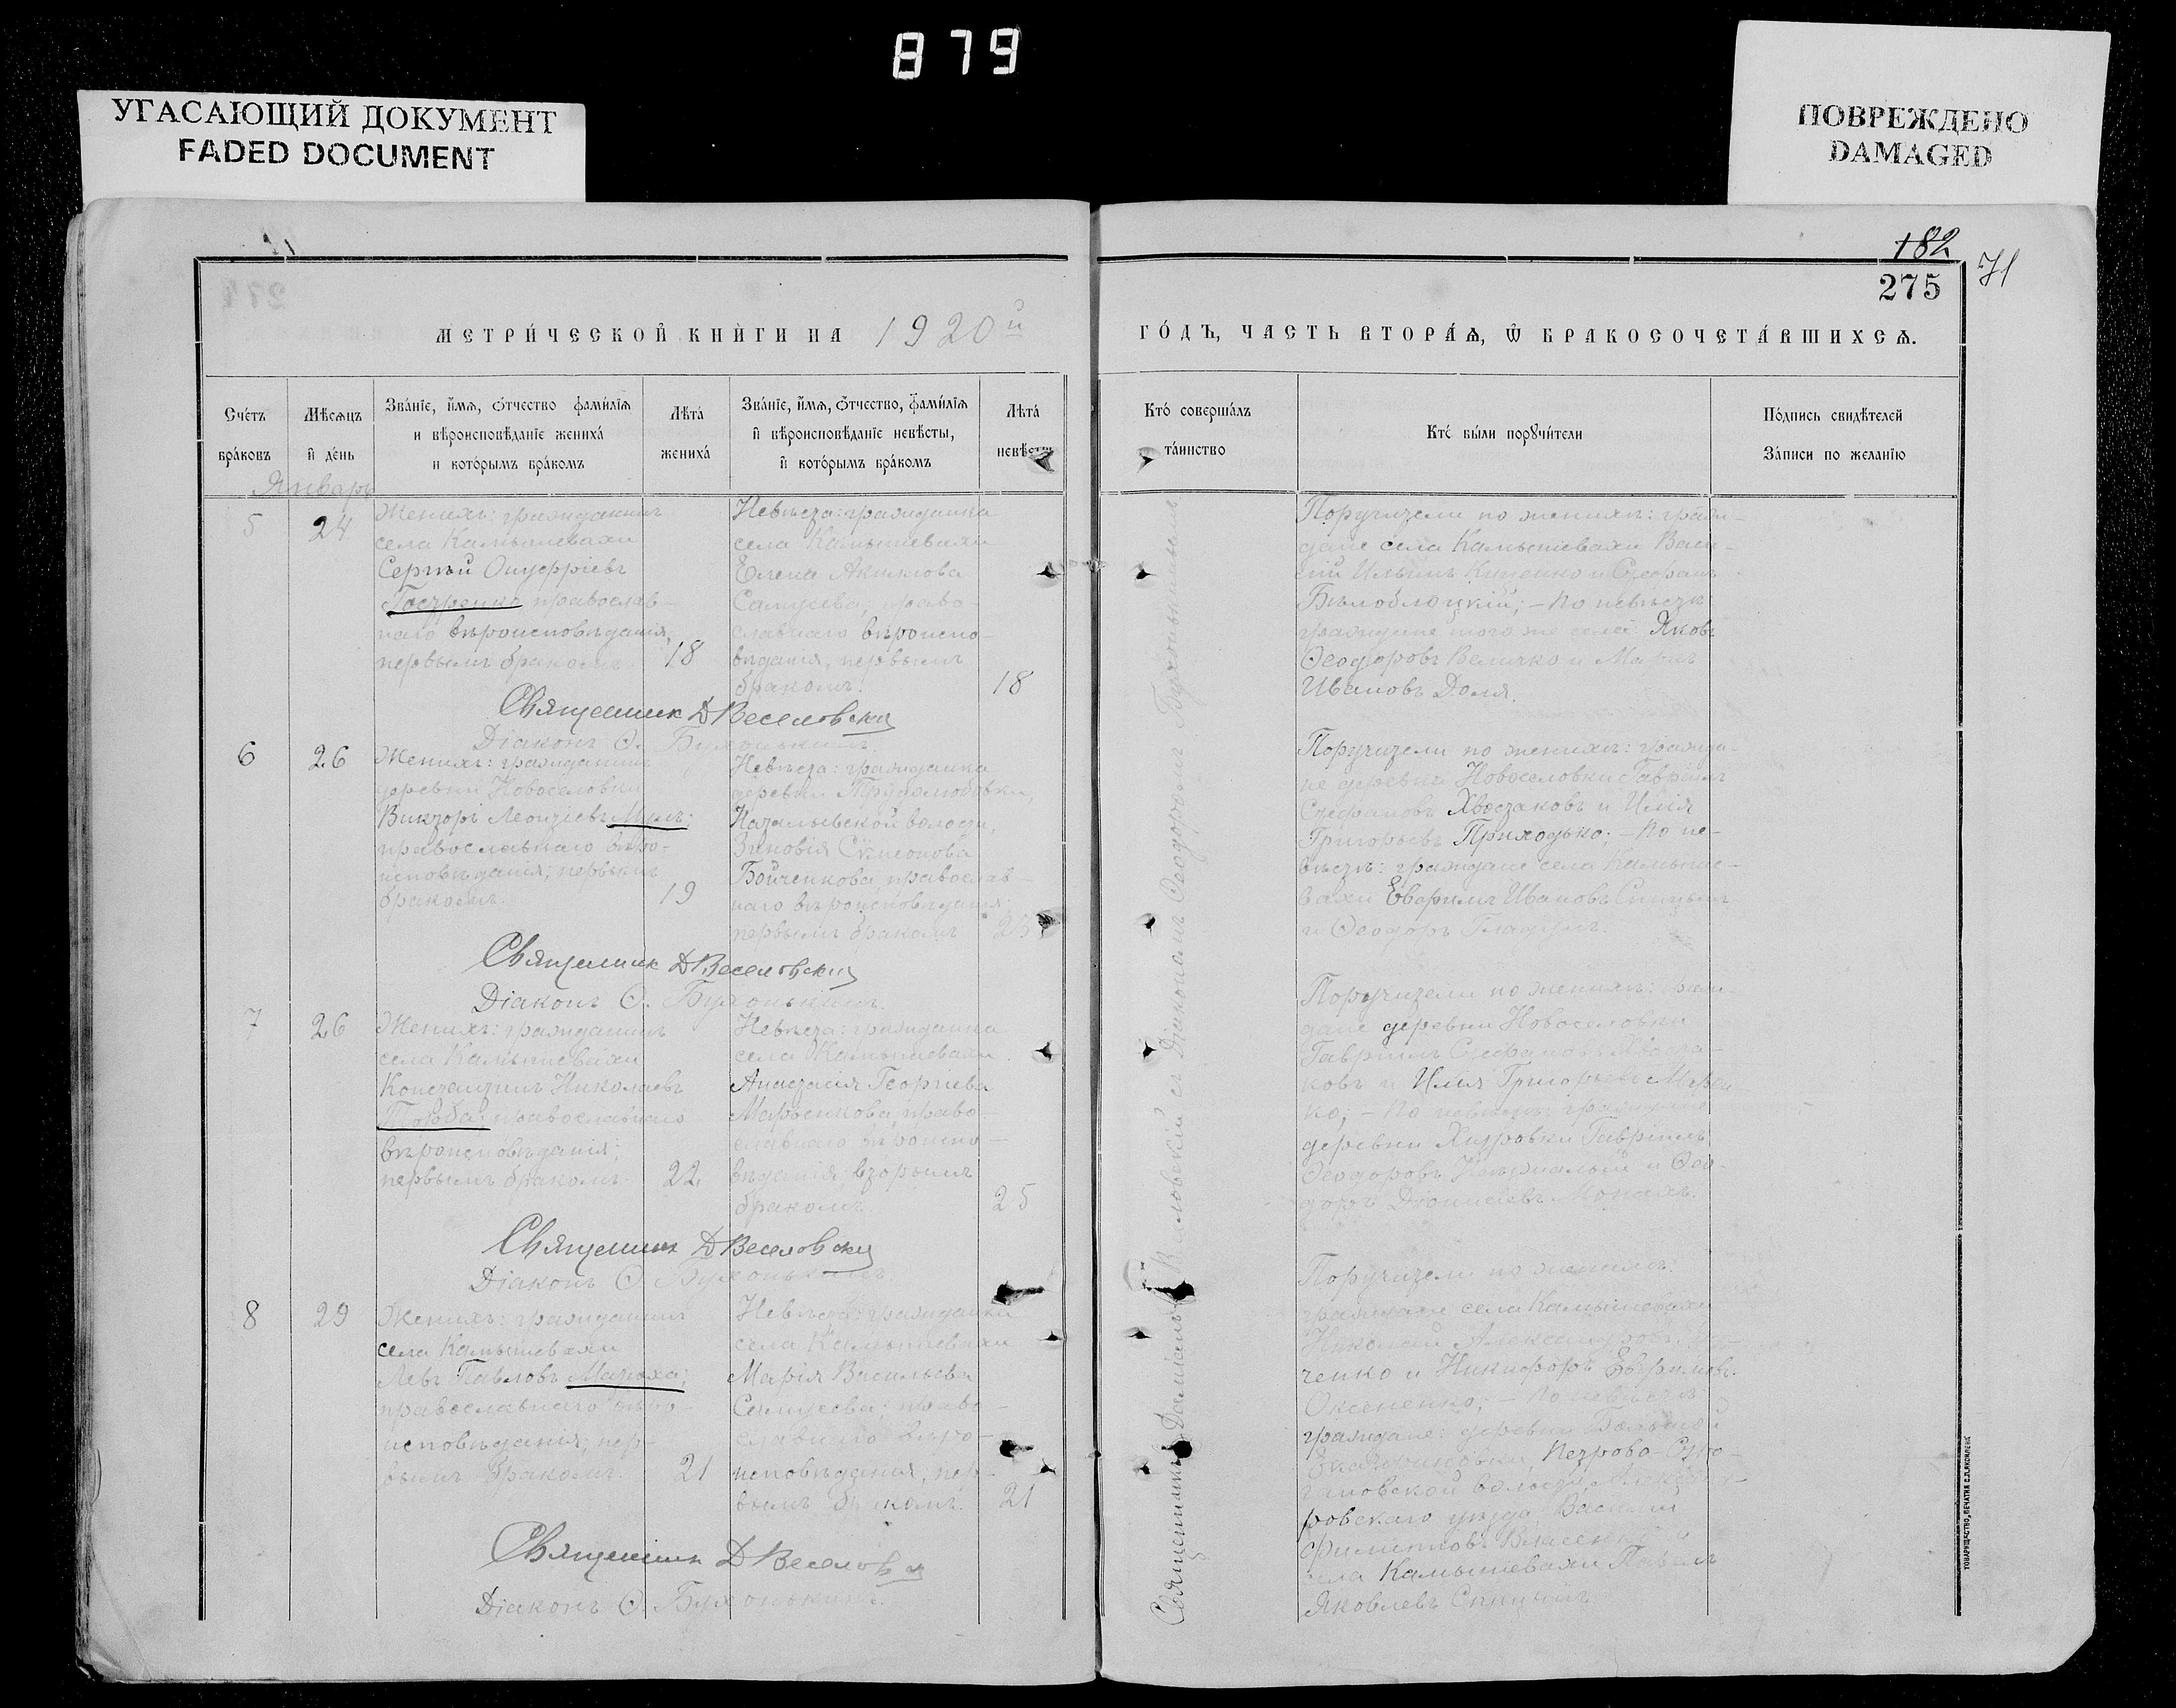 879
УГАСАЮЩИЙ ДОКУМЕНТ
FADED DOCUMENT
ПОВРЕЖДЕНО
DAMAGED
182
71
275
МЕТРИ́ЧЕСКОЙ КНИ́ГИ НА 1920й
ГО́ДЪ, ЧАСТЬ ВТОРА́Ѧ, Ѿ БРАКОСОЧЕТА́ВШИХСѦ.
Сче́тъ бра́ковъ
Мѣ́сѧцъ и҆ де́нь
Зва́нїе, и҆́мѧ, ѻ҆́тчество фами́лїѧ
и вѣроисповѣ́данїе жениха́
и кото́рымъ бра́комъ
Лѣта́ жениха́
Зва́нїе, и҆́мѧ, ѻ҆́тчество, фами́лїѧ
и҆ вѣроисповѣ́данїе невѣ́сты,
и҆ кото́рымъ бра́комъ
Лѣта́ невѣ́сты
Кто́ соверша́лъ та́инство
Кто́ бы́ли порꙋчи́тели
По́дпись свидѣ́телей
За́писи по жела́нїю
Январь
5
24
Женихъ: гражданинъ
села Камышевахи
Сергѣй Онуфріевъ
православ-
наго вѣроисповѣданія,
первымъ бракомъ.
18
Невѣста: гражданка
села Камышевахи
Елена Акимова
Самусева, право-
славнаго вѣроиспо-
вѣданія, первымъ
бракомъ.
18
Поручители по женихѣ: граж-
дане села Камышевахи Васи-
лій Ильинъ и Стефанъ
Бѣлоблоцкій; – по невѣстѣ
граждане того же села: Яковъ
Ѳеодоровъ Величко и Маркъ
Ивановъ Доля.
Священник Д Веселовский
Діаконъ Ѳ. Бухонькинъ.
6
26
Женихъ: гражданинъ
деревни Новоселовки
Викторъ Леонтіевъ
православнаго вѣро-
исповѣданія; первымъ
бракомъ.
19
Невѣста: гражданка
деревни Трудолюбовки,
волости,
Зиновія Симеонова
Бойченкова, православ-
наго вѣроисповѣданія
первымъ бракомъ
Поручители по женихѣ: гражда-
не деревни Новоселовки Гавріилъ
Стефановъ Хвостаковъ и Илія
Григорьевъ Приходько; – по не-
вѣстѣ: граждане села Камыше-
вахи Евфимъ Ивановъ Спицынъ
и Ѳеодоръ Гладунъ.
Священник Д Веселовский
Діаконъ Ѳ. Бухонькинъ.
7
26
Женихъ: гражданинъ
села Камышевахи
Константинъ Николаевъ
православнаго
вѣроисповѣданія;
первымъ бракомъ.
22
Невѣста: гражданка
села Камышевахи
Анастасія Георгіева
Марченкова, право-
славнаго вѣроиспо-
вѣданія, вторымъ
бракомъ.
25
Поручители по женихѣ: граж-
дане деревни Новоселовки
Гавріилъ Стефановъ Хвоста-
ковъ и Илія Григорьевъ
ко; – по невѣстѣ: граждане
деревни Гавріилъ
Ѳеодоровъ и Ѳео-
доръ Діонисіевъ Монахъ.
Священник Д Веселовский
Діаконъ Ѳ. Бухонькинъ.
8
29
Женихъ: гражданинъ
села Камышевахи
Левъ Павловъ Малюха;
православнаго вѣро-
исповѣданія; пер-
вымъ бракомъ.
21
Невѣста: гражданка
села Камышевахи
Марія Васильева
Самусева; право-
славнаго вѣро-
исповѣданія; пер-
вымъ бракомъ.
21
Поручители по женихѣ:
граждане села Камышевахи
Николай Александровъ
ченко и Никифоръ Евфимовъ
Оксененко; – по невѣстѣ:
граждане: деревни Большой
Екатериновки, Петрово-
волости, Александ-
ровскаго уѣзда, Василій
Филипповъ
села Камышевахи Павелъ
Яковлевъ Спицынъ.
Священник Д Веселовский
Діаконъ Ѳ. Бухонькинъ.
Священникъ Даміанъ Веселовскій съ Діакономъ Ѳеодоромъ Бухонькинымъ
ТОВАРИЩЕСТВО „ПЕЧАТНЯ С.П.ЯКОВЛЕВА"